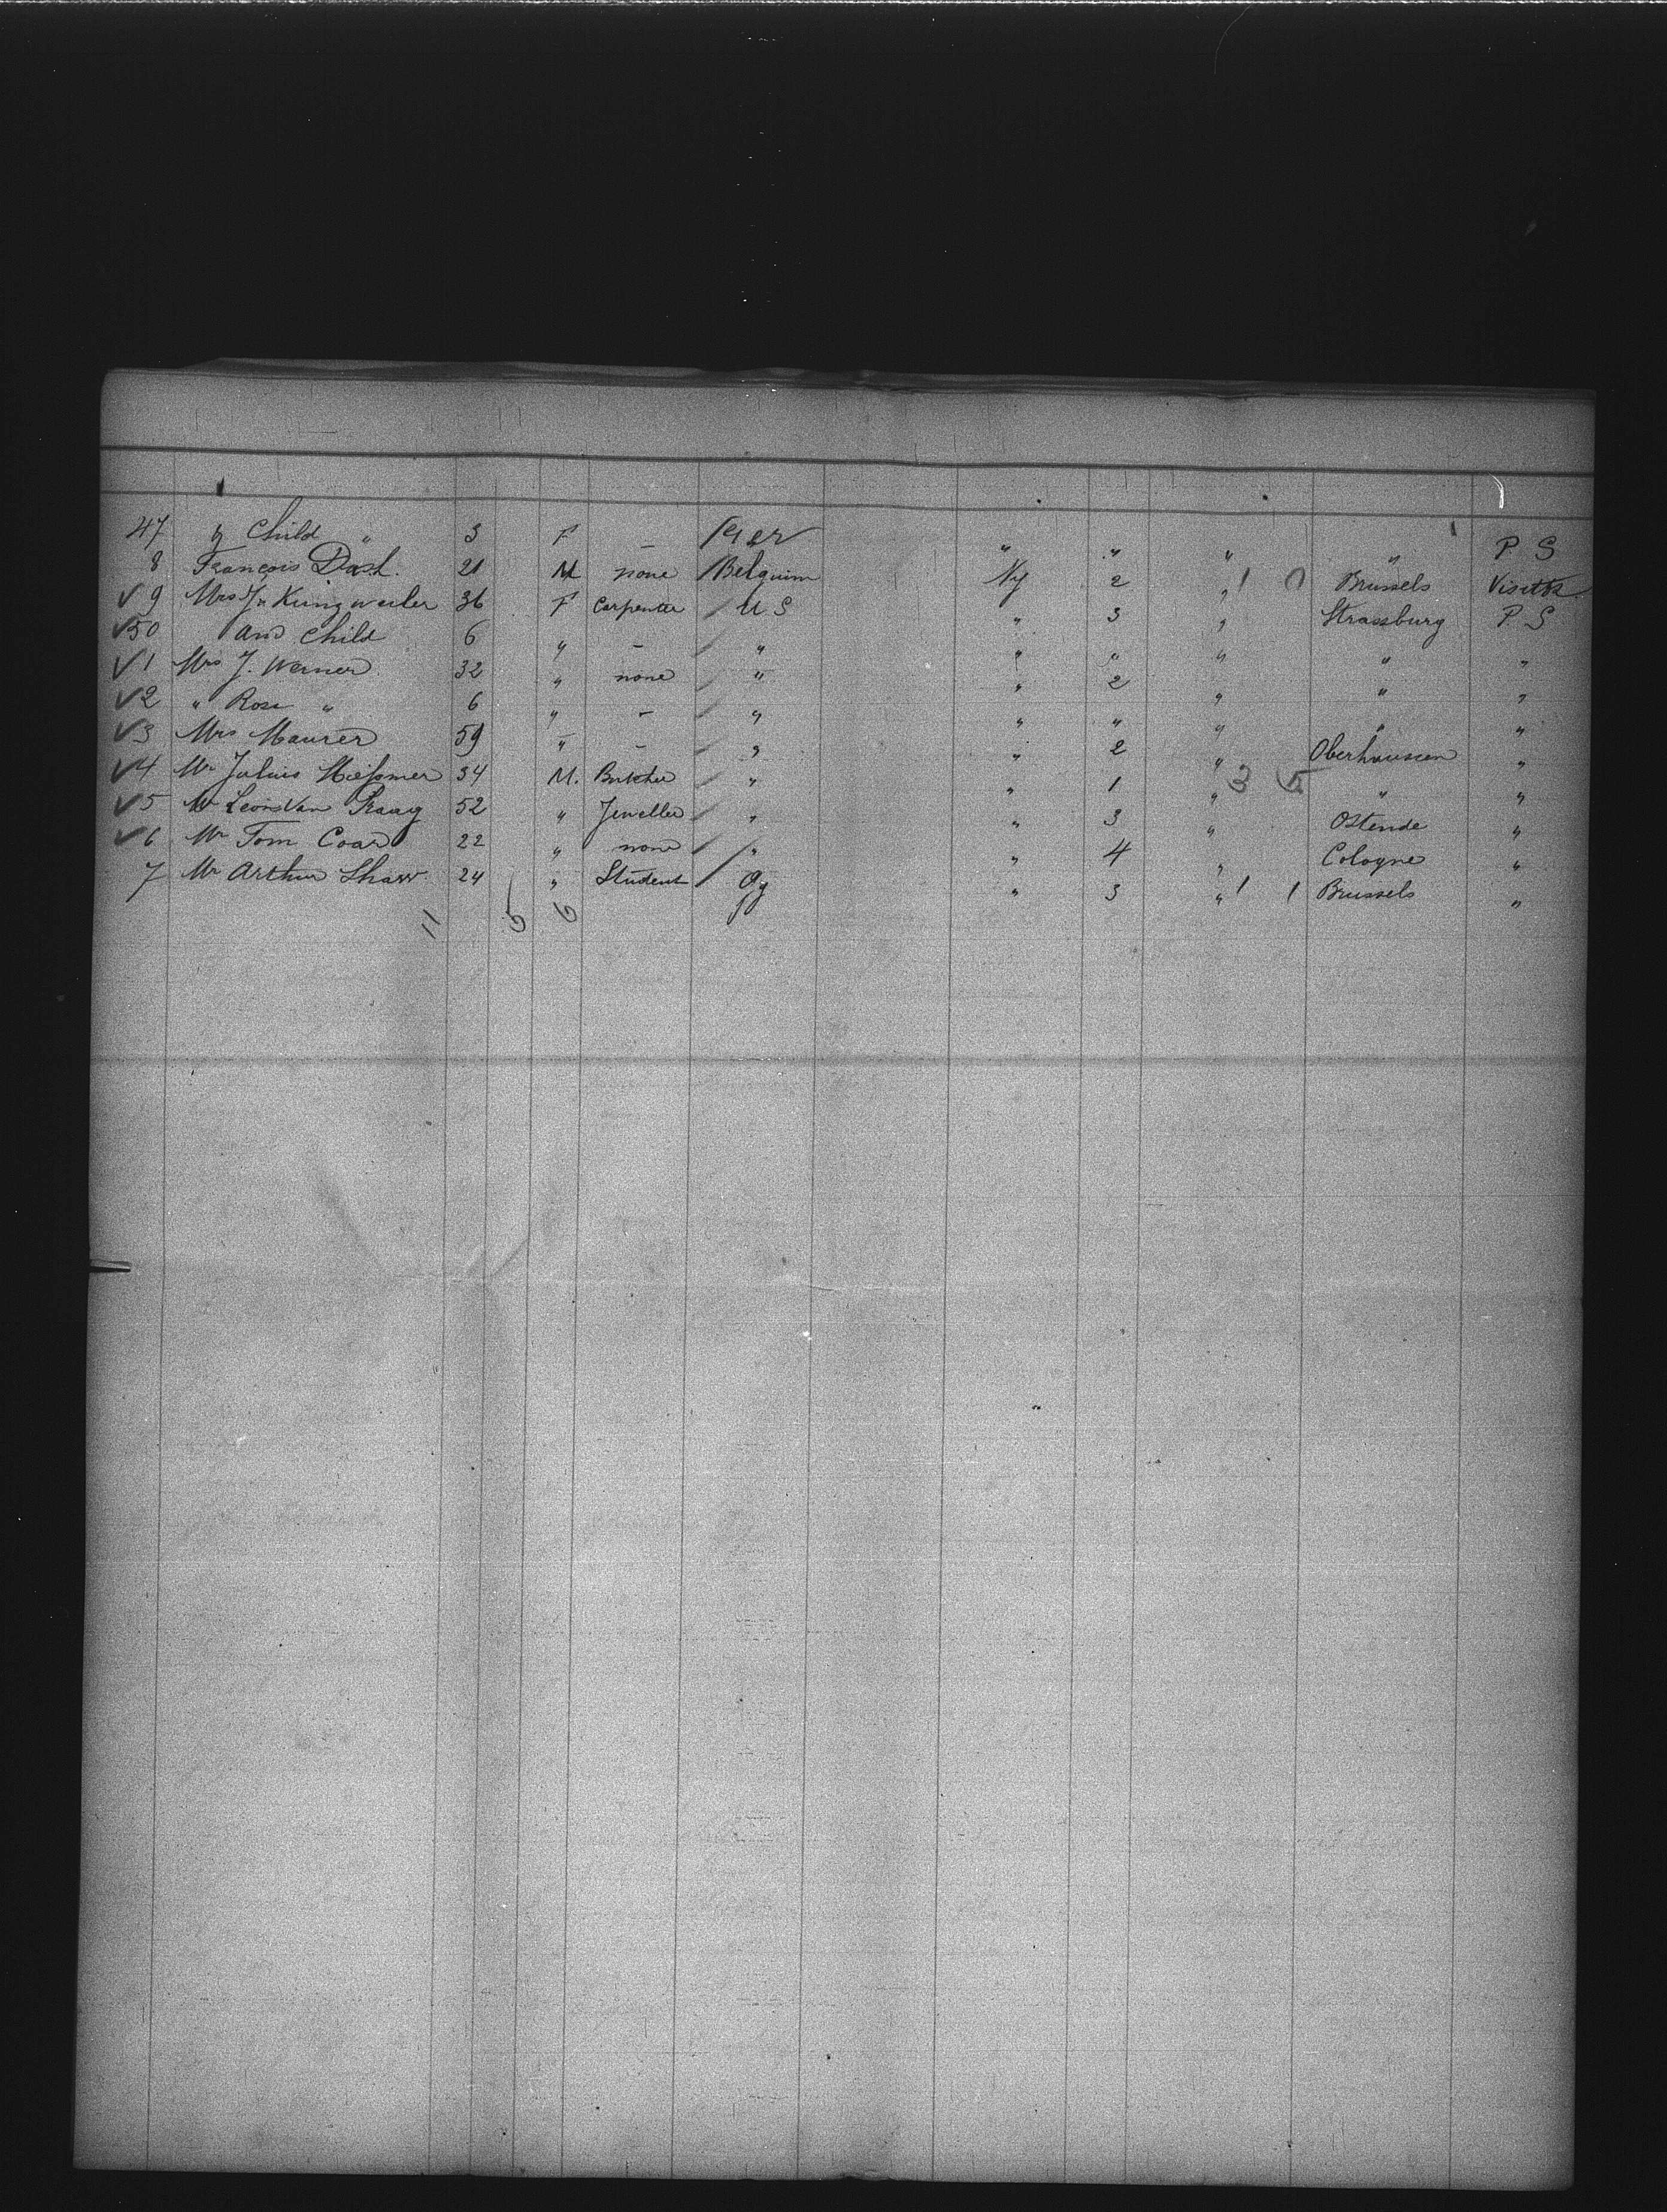 47 & Child " 3 F – " " " " P S
8 François Dash. 21 M none Belguim Ny 2 " 1 0 Brussels Visitor
9 Mrs J. Kungweiler 36 F Carpenter U S " 3 " Strassburg P S
50 and Child 6 " – " " " " " "
1 Mrs J. Werner 32 " none " " 2 " " "
2 " Rosa " 6 " – " " " " " "
3 Mrs Maurer 59 " – " " 2 " Oberhausen "
4 Mr Julius 34 M. Butcher " " 1 " 3 5 " "
5 Mr Leon Van Praag 52 " Jeweller " " 3 " Ostende "
6 Mr Tom Coard 22 " none " " 4 " Cologne "
7 Mr Arthur Shaw 24 " Student " 3 " 1 1 Brussels "
11 5 6